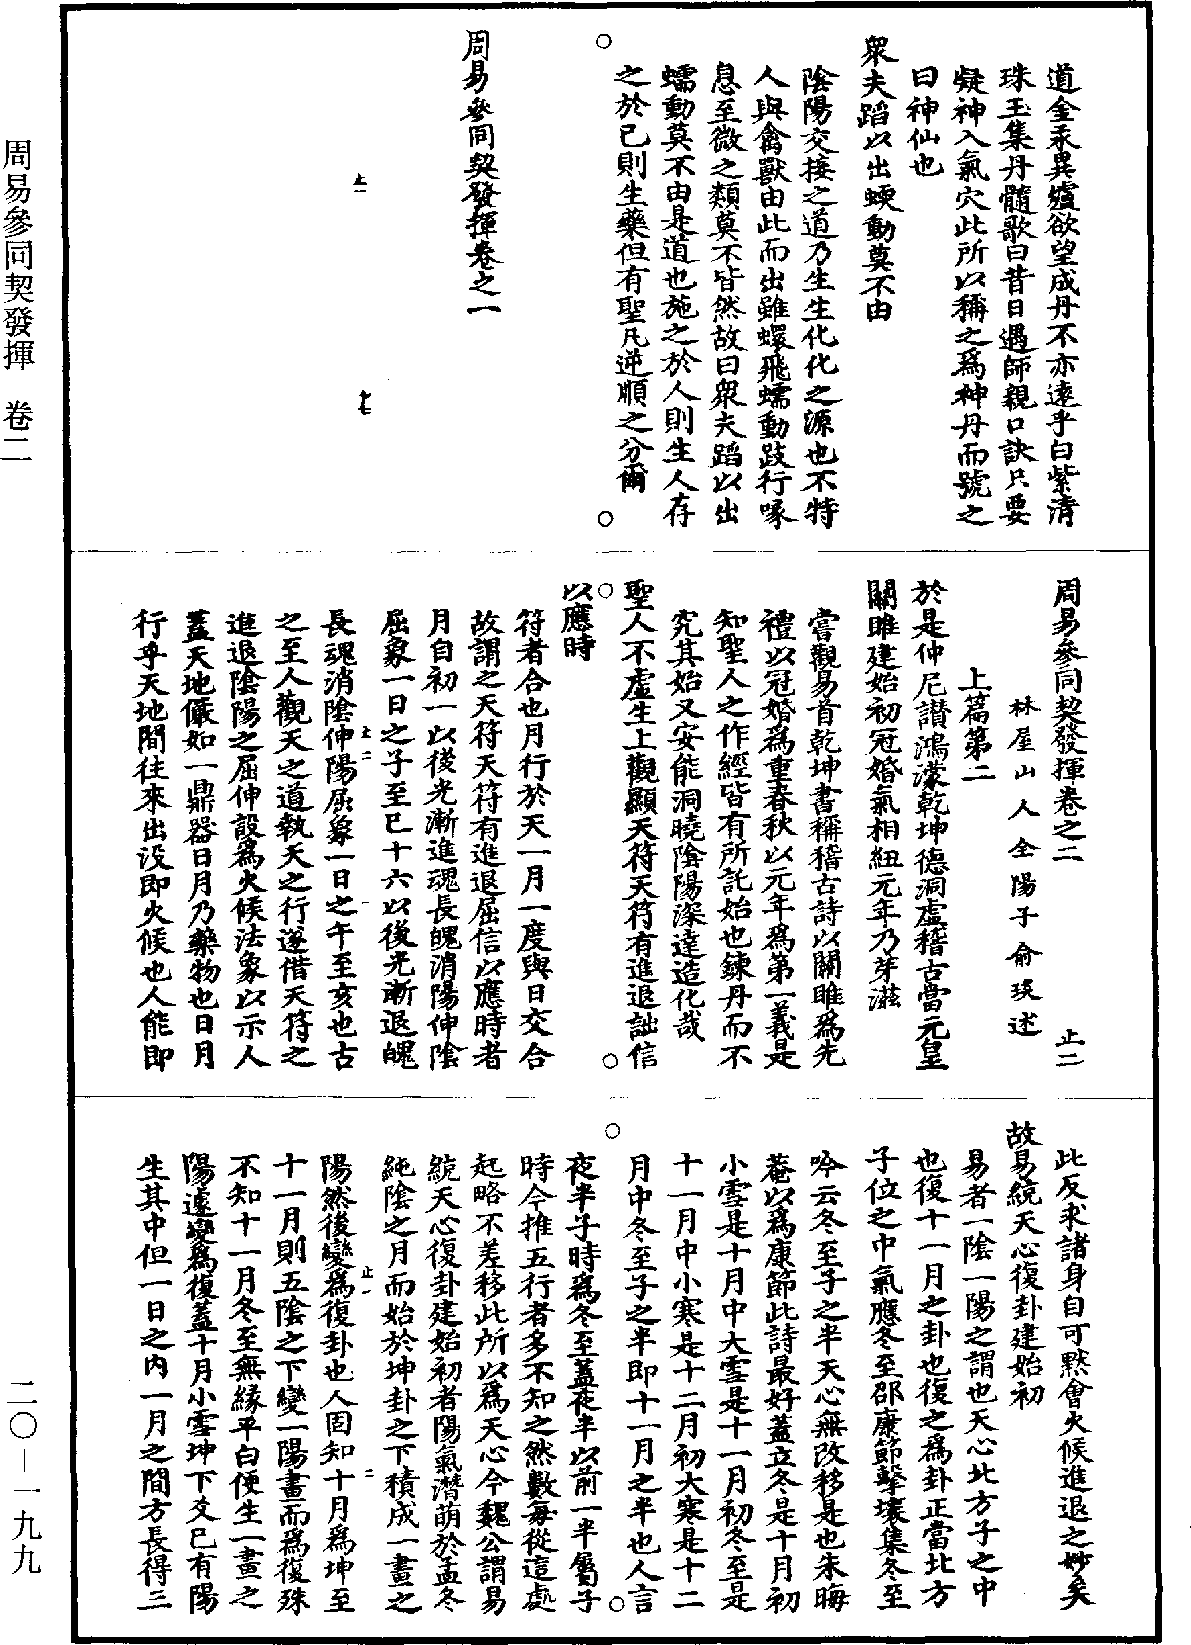 道金汞異爐欲望成丹不亦遠乎白紫清
珠玉集丹髓歌曰昔日遇師親口訣只要
凝神入氣穴此所以稱之爲神丹而號之
曰神仙也
衆夫蹈以出蝡動莫不由
陰陽交接之道乃生生化化之源也不特
人與禽獸由此而出雖蠉飛蠕動跂行喙
息至微之類莫不皆然故曰衆夫蹈以出
蠕動莫不由是道也施之於人則生人存
之於己則生藥但有聖凡逆順之分爾
周易參同契發揮卷之一
周易參同契發揮卷之二
止二
林屋山人全陽子俞琰述
上篇第二
於是仲尼讃鴻濛乾坤德洞虛稽古當元皇
關雎建始初冠婚氣相紐元年乃芽滋
嘗觀易首乾坤書稱稽古詩以關雎爲先
禮以冠婚爲重春秋以元年爲第一義是
知聖人之作經皆有所託始也鍊丹而不
究其始又安能洞曉陰陽深達造化哉
聖人不虛生上觀顯天符天符有進退詘信
以應時
符者合也月行於天一月一度與日交合
故謂之天符天符有進退屈信以應時者
月自初一以後光漸進魂長魄消陽伸陰
屈象一日之子至巳十六以後光漸退魄
長魂消陰伸陽屈象一日之午至亥也古
之至人觀天之道執天之行遂借天符之
進退陰陽之屈伸設爲火候法象以示人
蓋天地儼如一鼎器日月乃藥物也日月
行乎天地間往來出没即火候也人能即
此反求諸身自可默會火候進退之妙矣
故易統天心復卦建始初
易者一陰一陽之謂也天心北方子之中
也復十一月之卦也復之爲卦正當北方
子位之中氣應冬至邵康節擊壤集冬至
吟云冬至子之半天心無改移是也朱晦
菴以爲康節此詩最好蓋立冬是十月初
小雪是十月中大雪是十一月初冬至是
十一月中小寒是十二月初大寒是十二
月中冬至子之半即十一月之半也人言
夜半子時爲冬至蓋夜半以前一半屬子
時今推五行者多不知之然數每從這處
起略不差移此所以爲天心今魏公謂易
統天心復卦建始初者陽氣潛萌於孟冬
純陰之月而始於坤卦之下積成一畫之
陽然後變爲復卦也人固知十月爲坤至
十一月則五陰之下變一陽畫而爲復殊
不知十一月冬至無緣平白便生一畫之
陽遽變爲復蓋十月小雪坤下爻已有陽
生其中但一日之内一月之間方長得三
周易參同契發揮　卷二
二〇—一九九